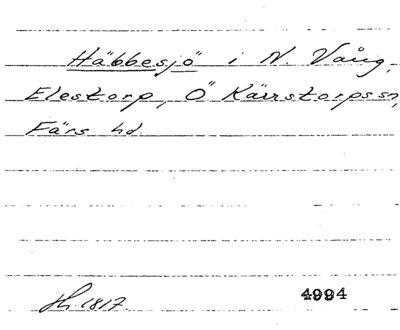 Häbbesjö i N. Vång,
Elestorp, Ö Kärrstorpssn,
Färs hd.
1817. 4994